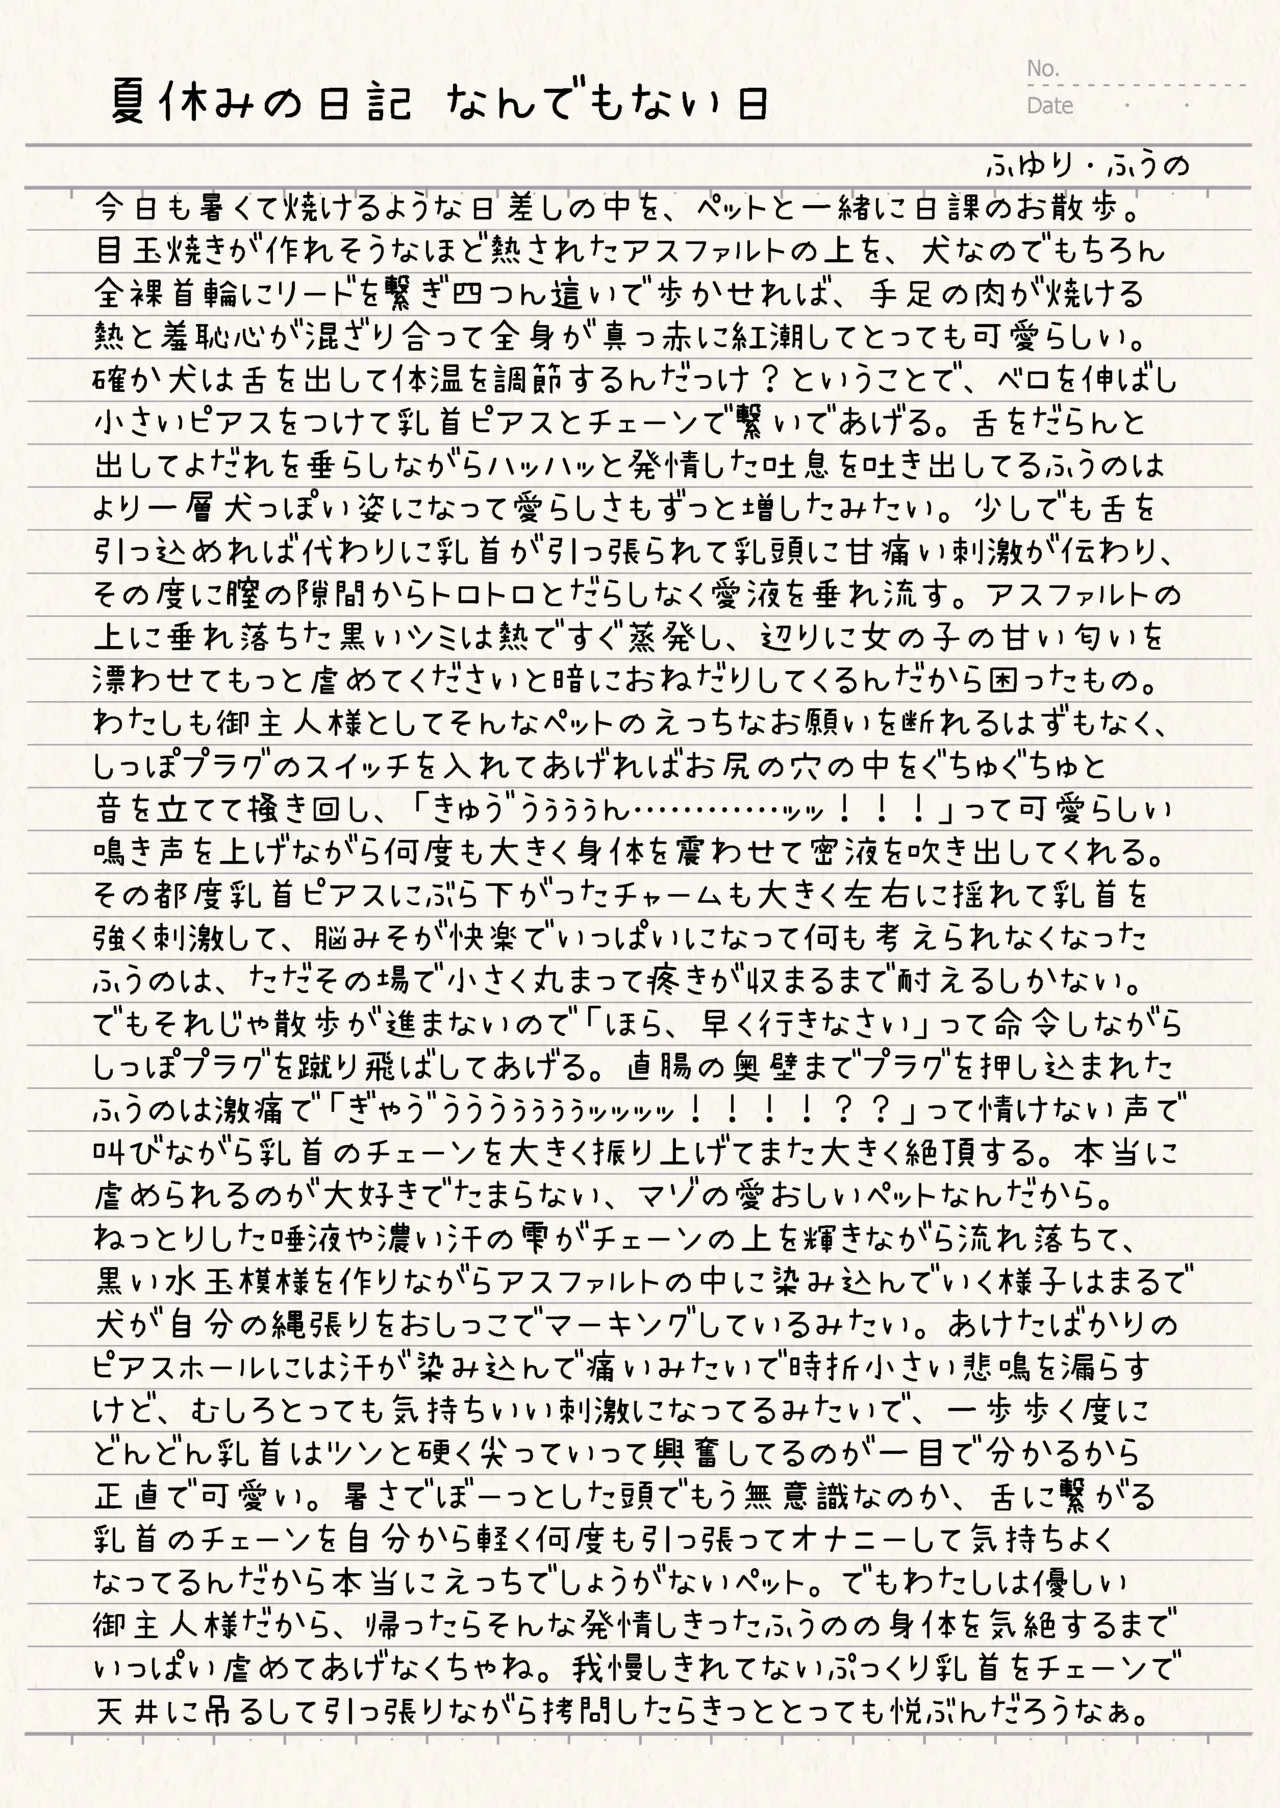 夏休みの日記 なんでもない日
No.
Date
ふゆり・ふうの
今日も暑くて焼けるような日差しの中を、ペットと一緒に日課のお散歩。
目玉焼きが作れそうなほど熱されたアスファルトの上を、犬なのでもちろん
全裸首輪にリードを繋ぎ四つん這いで歩かせれば、手足の肉が焼ける
熱と羞恥心が混ざり合って全身が真っ赤に紅潮してとっても可愛らしい。
確か犬は舌を出して体温を調節するんだっけ？ということで、ベロを伸ばし
小さいピアスをつけて乳首ピアスとチェーンで繋いであげる。舌をだらんと
出してよだれを垂らしながらハッハッと発情した吐息を吐き出してるふうのは
より一層犬っぽい姿になって愛らしさもずっと増したみたい。少しでも舌を
引っ込めれば代わりに乳首が引っ張られて乳頭に甘痛い刺激が伝わり、
その度に膣の隙間からトロトロとだらしなく愛液を垂れ流す。アスファルトの
上に垂れ落ちた黒いシミは熱ですぐ蒸発し、辺りに女の子の甘い匂いを
漂わせてもっと虐めてくださいと暗におねだりしてくるんだから困ったもの。
わたしも御主人様としてそんなペットのえっちなお願いを断れるはずもなく、
しっぽプラグのスイッチを入れてあげればお尻の穴の中をぐちゅぐちゅと
音を立てて掻き回し、「きゅゔうぅぅぅん…………ッッ！！！」って可愛らしい
鳴き声を上げながら何度も大きく身体を震わせて密液を吹き出してくれる。
その都度乳首ピアスにぶら下がったチャームも大きく左右に揺れて乳首を
強く刺激して、脳みそが快楽でいっぱいになって何も考えられなくなった
ふうのは、ただその場で小さく丸まって疼きが収まるまで耐えるしかない。
でもそれじゃ散歩が進まないので「ほら、早く行きなさい」って命令しながら
しっぽプラグを蹴り飛ばしてあげる。直腸の奥壁までプラグを押し込まれた
ふうのは激痛で「ぎゃゔうううぅぅぅぅッッッッ！！！！？？」って情けない声で
叫びながら乳首のチェーンを大きく振り上げてまた大きく絶頂する。本当に
虐められるのが大好きでたまらない、マゾの愛おしいペットなんだから。
ねっとりした唾液や濃い汗の雫がチェーンの上を輝きながら流れ落ちて、
黒い水玉模様を作りながらアスファルトの中に染み込んでいく様子はまるで
犬が自分の縄張りをおしっこでマーキングしているみたい。あけたばかりの
ピアスホールには汗が染み込んで痛いみたいで時折小さい悲鳴を漏らす
けど、むしろとっても気持ちいい刺激になってるみたいで、一歩歩く度に
どんどん乳首はツンと硬く尖っていって興奮してるのが一目で分かるから
正直で可愛い。暑さでぼーっとした頭でもう無意識なのか、舌に繋がる
乳首のチェーンを自分から軽く何度も引っ張ってオナニーして気持ちよく
なってるんだから本当にえっちでしょうがないペット。でもわたしは優しい
御主人様だから、帰ったらそんな発情しきったふうのの身体を気絶するまで
いっぱい虐めてあげなくちゃね。我慢しきれてないぷっくり乳首をチェーンで
天井に吊るして引っ張りながら拷問したらきっととっても悦ぶんだろうなぁ。